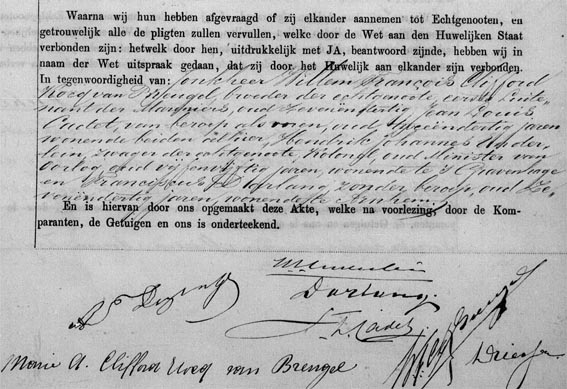 Waarna wij hun hebben afgevraagd of zij elkander aannemen tot Echtgenooten, en
getrouwelijk alle de pligten zullen vervullen, welke door de Wet aan den Huwelijken Staat
verbonden zijn: hetwelk door hen, uitdrukkelijk met JA, beantwoord zijnde, hebben wij in
naam der Wet uitspraak gedaan, dat zij door het Huwelijk aan elkander zijn verbonden.
In tegenwoordigheid van: Jonkheer Willem François Clifford
Kocq van Breugel, broeder der echtgenoote, eerste Luite-
nant der Mariniers, oud zevenentwintig, Jean Louis
Cadet, van beroep, oud jaren
wonende beiden alhier, Hendrik Johannes Ender-
lein, zwager der echtgenoote, Kolonel, oud Minister van
Oorlog, oud jaren, wonende te 's Gravenhage
en Franciscus, zonder beroep, oud
jaren, wonende te Arnhem.
En is hiervan door ons opgemaakt deze Akte, welke na voorlezing, door de Kom-
paranten, de Getuigen en ons is onderteekend.
Enderlein
Cadet
Marie A. Clifford Kocq van Breugel